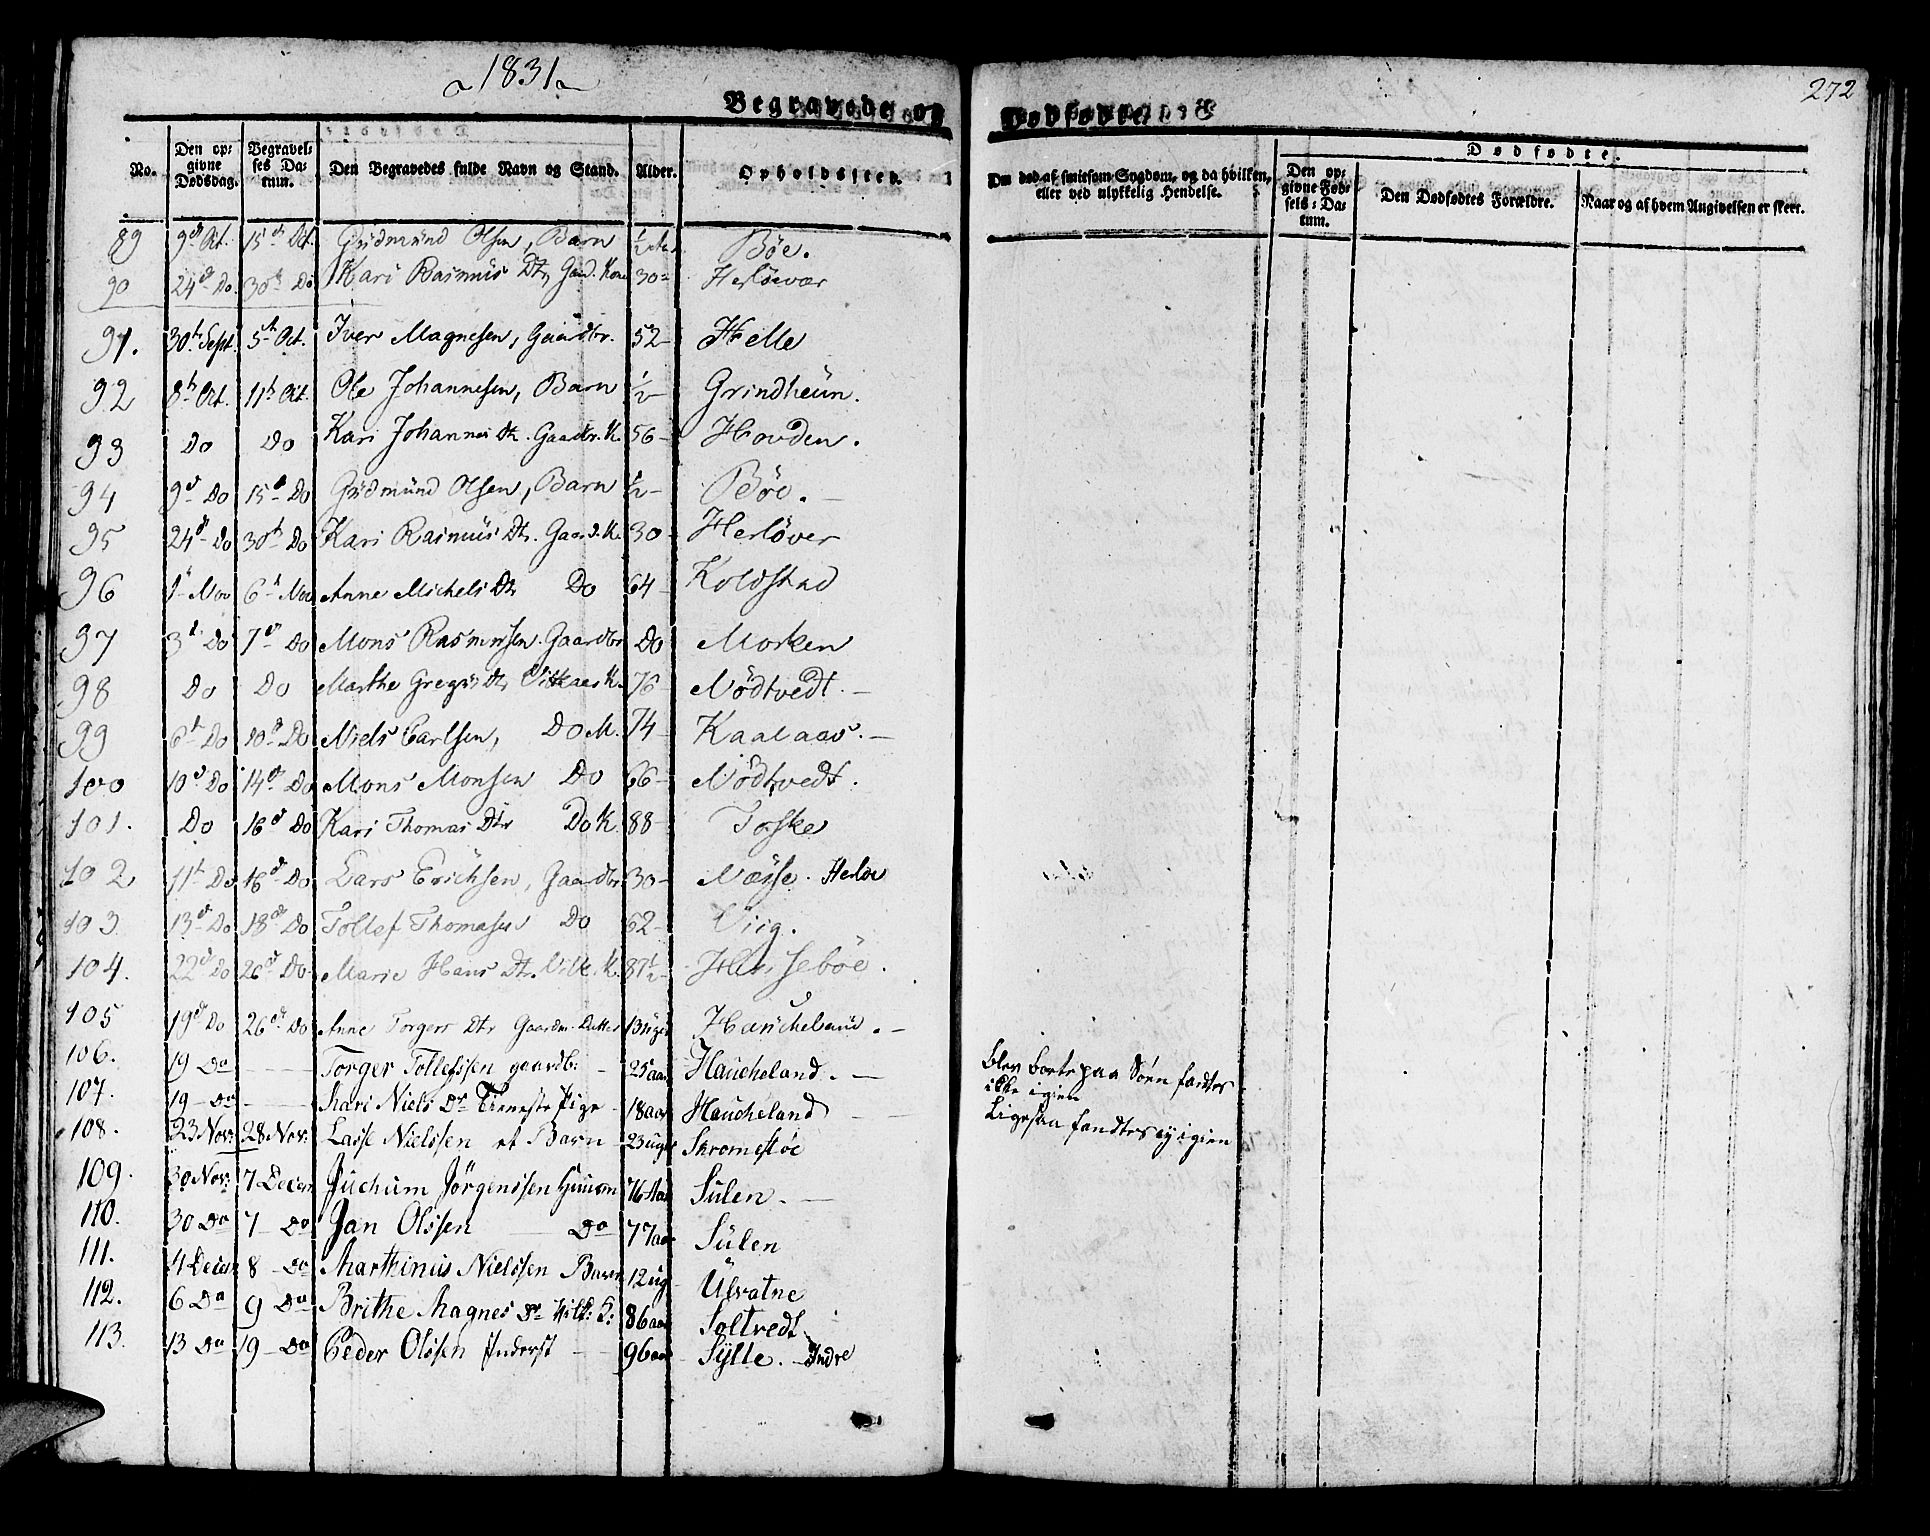 1831
272
Begravede og Dødfødte
No. Den opgivne Dødsdag. Begravelses Datum. Den Begravedes fulde Navn og Stand. Alder. Opholdssted. Om død af smitsom Sygdom, og da hvilken, eller ved ulykkelig Hendelse. Dødfødte. Den opgivne Fødsels-Datum. Den Dødfødtes Forældre. Naar og af hvem Angivelsen er skeet.
89 9d Oct. 15d Oct. Gudmünd Olsen, Barn 1/2 Bøe.
90 24d Do. 30th Do Kari Rasmus Dtr, Gaard. Kone 30 Herløevær
91. 30th Sept. 5th Oct. Iver Magnesen, Gaardbr. 52 Helle
92 8th Oct. 11th Oct. Ole Johannesen, Barn 1/2 Grindheim.
93 Do Do Kari Johannes Dtr. Gaardbr. K. 56 Hovden.
94 9d Do 15d Do Gudmünd Olsen, Barn 1/2 Bøe.
95 24d Do 30th Do Kari Rasmüs Dtr. Gaard. K. 30 Herløver
96 1d Nov 6d Nov Anne Michels Dtr Do 64 Koldstad
97 3d Do 7d Do Mons Rasmussen. Gaardbr Do Morken
98 Do Do Marthe Gregers Dtr Vilkaer K. 76 Nödtvedt.
99 6d Do 10d Do Niels Carlsen, Do M. 74 Kaalaas.
100 10d Do 14d Do Mons Monsen Do 66 Nödtvedt.
101. Do 16d Do Kari Thomas Dtr Do K. 88 Toske
102 11t Do 16d Do Lars Erichsen, Gaardbr 30 Næsse. Herlöe
103 13d Do 18de Do Tollef Thomasen Do 62 Viig.
104. 22d Do 26d Do Marie Hans Dt. Vilk. K. 87 1/2 Husebøe.
105 19d Do 26de Do Anne Torgers Dtr Gaardm. Datter 13 uger Haucheland.
106. 19 Do Torger Tollefssen gaardb: 25 aar Haucheland. Blev borte paa Söen fandtes ikke igien
107. 19 Do Kari Niels Dr Tieneste Pige 18 aar Haucheland Ligesaa fandtes ey igien
108. 23 Nov: 28 Nov: Lasse Nielssen et Barn 23 uger Skromestøe
109. 30 Nov: 7 Decem Juchum Jörgenssen Huusm 76 Aar Sülen.
110. 30 Do 7 Do Jan Olssen Do 77 aar Sülen
111. 4 Decem 8 Do Marthinus Nielssen Barn 12 ug Ulvatne
112. 6 Do 9 Do Brithe Magnes Dr Vilk: K: 86 aar Soltvedt
113. 13 Do 19 Do Peder Olssen Inderst 96 aar Sylte. Indre